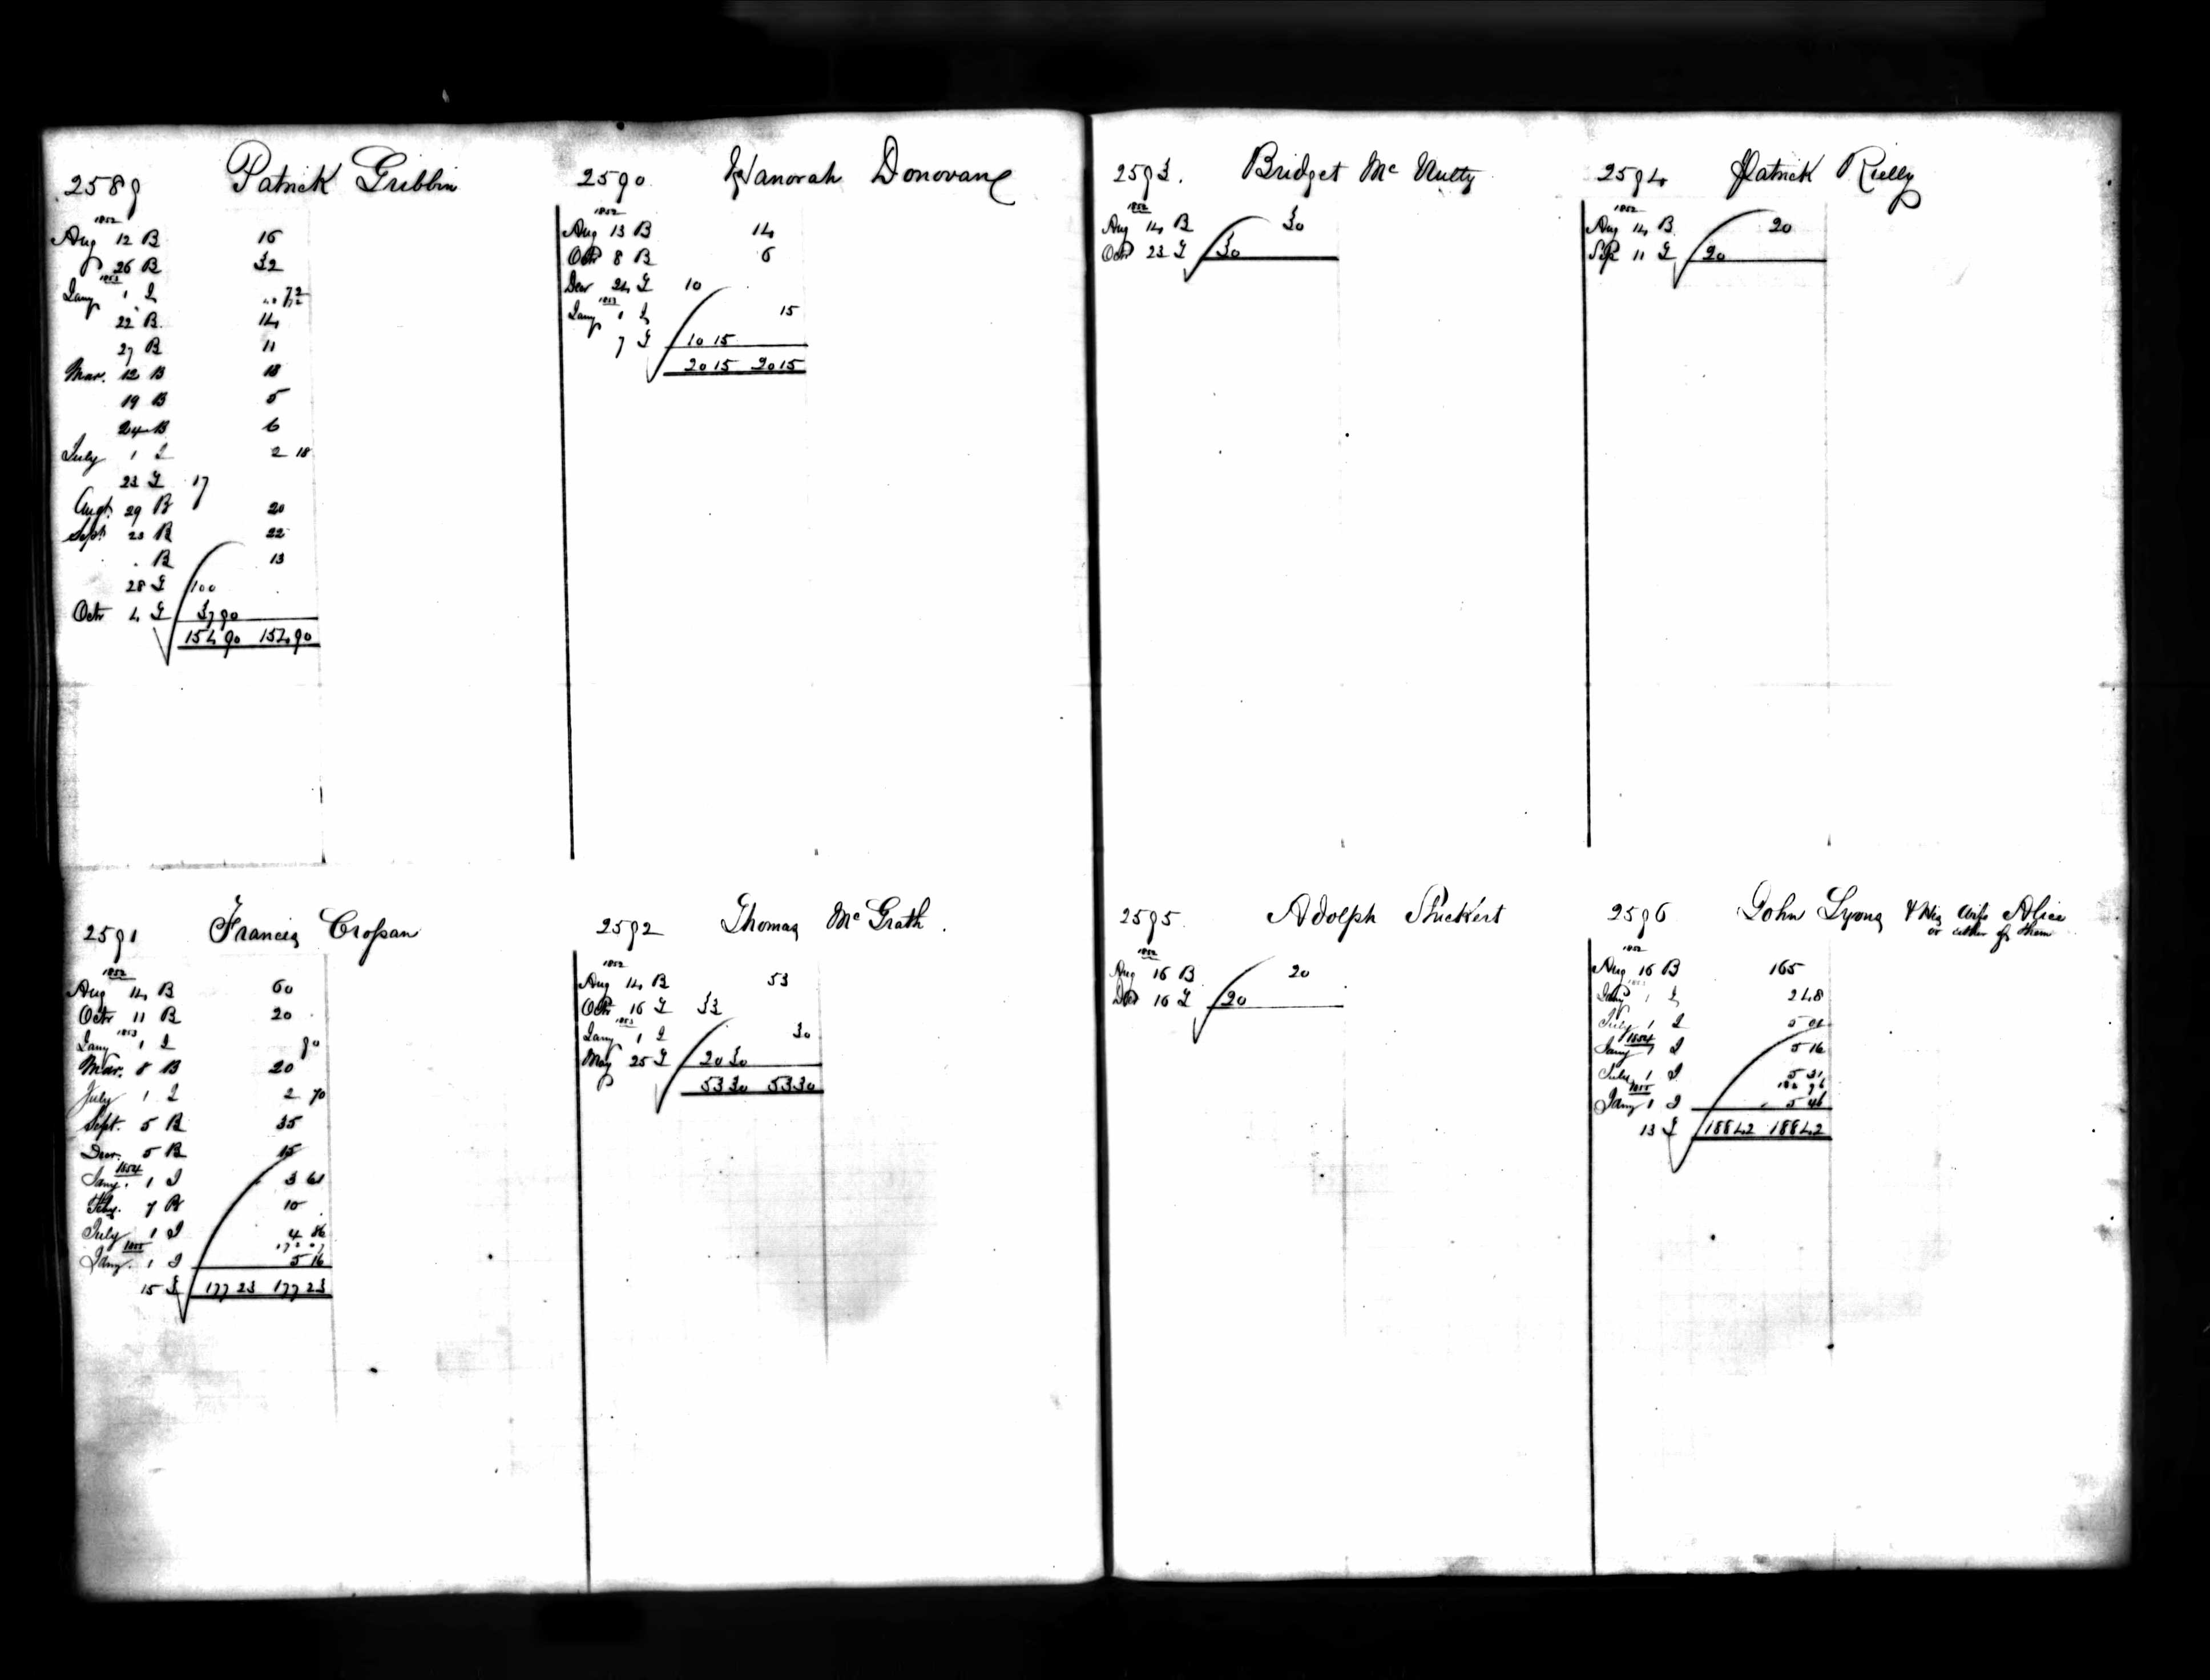 2589 Patrick Gribbin
1852
Aug 12 B 16
26 B 32
1853
Jany 1 I 72
22 B 14
27 B 11
Mar. 12 B 18
19 B 5
24 B 6
July 1 I 2 18
23 T 17
Augt. 29 B 20
Sept. 23 B 22
. B 13
28 T 100
Octr 4 T 37 90
154 90 154 90
2590 Hanorah Donovan
1852
Aug 13 B 14
Octr 8 B 6
Decr 24 T 10
1853
Jany 1 I 15
7 T 10 15
20 15 20 15
2591 Francis Croſsan
1852
Aug 14 B 60
Octr 11 B 20
1853
Jany 1 I 90
Mar. 8 B 20
July 1 I 2 70
Sept. 5 B 35
Decr. 5 B 15
1854
Jany. 1 I 3 61
Feby. 7 B 10
July 1 I 4 86
1855
Jany. 1 I 5 16
15 T 177 23 177 23
2592 Thomas Mc Grath
1852
Aug 14 B 53
Octr 16 T 33
1853
Jany 1 I 30
May 25 T 20 30
53 30 53 30
2593. Bridget Mc Nulty
1852
Aug 14 B 30
Octr 23 T 30
2594 Patrick Rielly
1852
Aug 14 B 20
Sep 11 T 20
2595 Adolph Stuckert
1852
Aug 16 B 20
Decr 16 T 20
2596 John Lyons & his wife Alice
or either of them
1852
Aug 16 B 165
1853
Jany 1 I 2 48
July 1 I 5 01
1854
Jany 1 I 5 16
July 1 I 5 31
182 96
1855
Jany 1 I 5 46
13 T 188 42 188 42